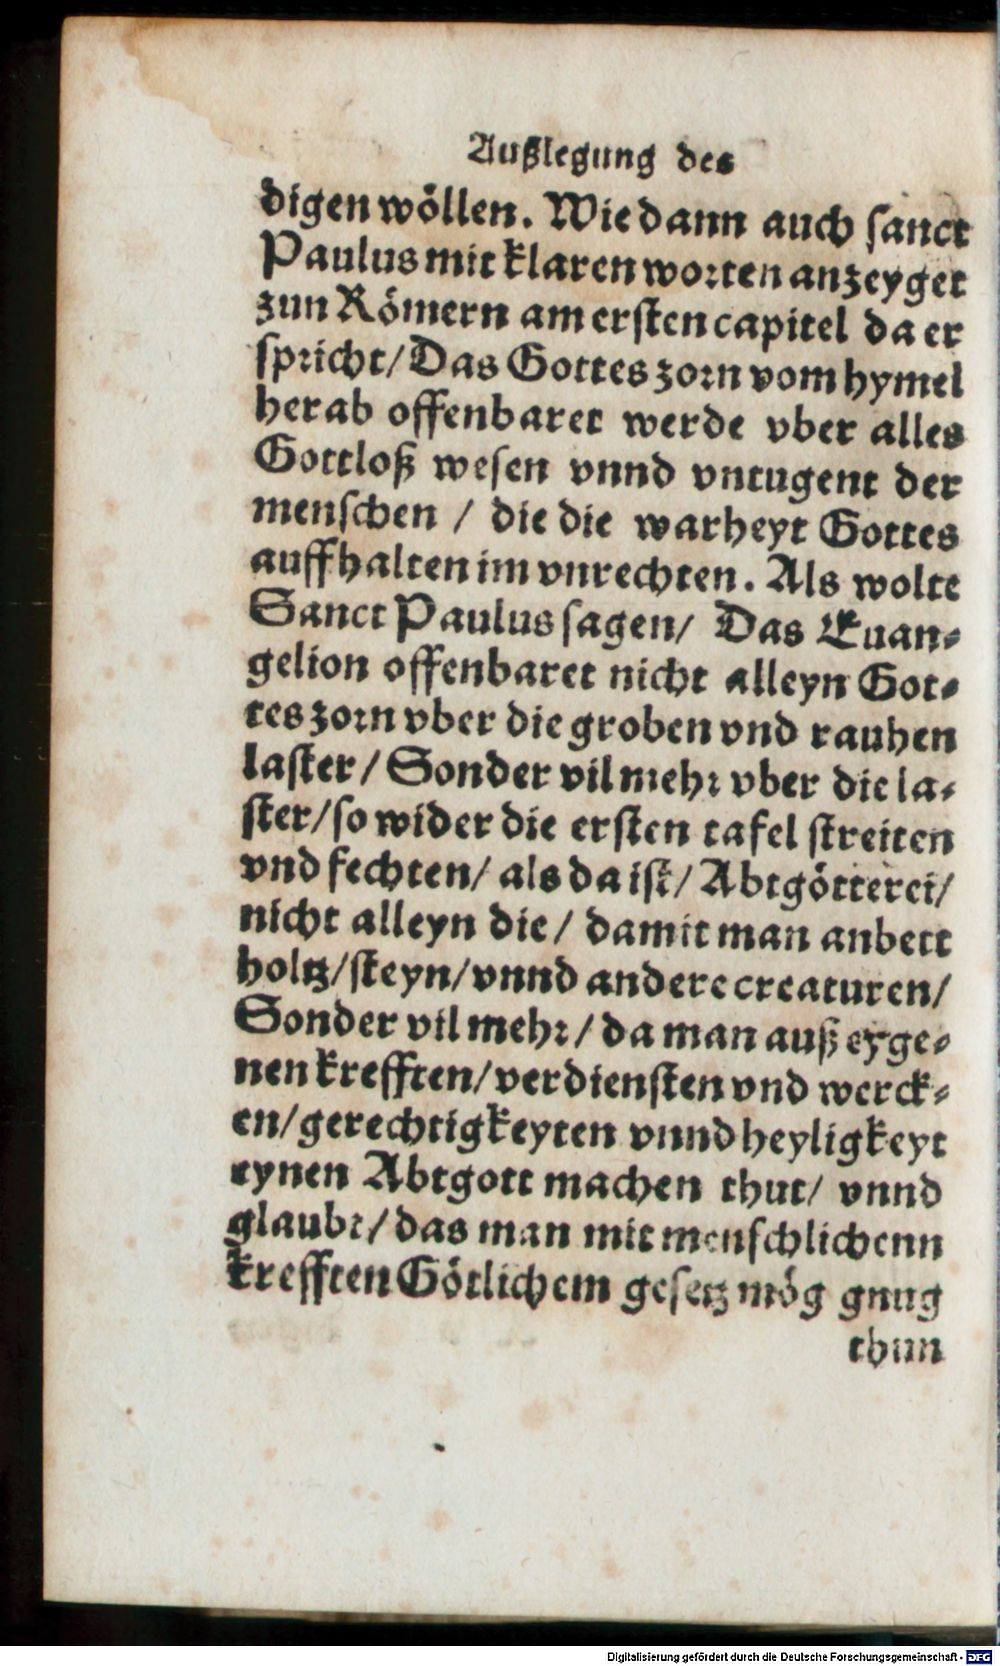 Außlegung des
digen wöllen. Wie dann auch sanct
Paulus mit klaren worten anzeyget
zun Römern am ersten capitel da er
spricht/ Das Gottes zorn vom hymel
herab offenbaret werde vber alles
Gottloß wesen vnnd vntugent der
menschen / die die warheyt Gottes
auffhalten im vnrechten. Als wolte
Sanct Paulus sagen/ Das Euan⸗
gelion offenbaret nicht alleyn Got⸗
tes zorn vber die groben vnd rauhen
laster/ Sonder vil mehr vber die la⸗
ster/ so wider die ersten tafel streiten
vnd fechten/ als da ist/ Abtgötterei/
nicht alleyn die/ damit man anbett
holtz/ steyn/ vnnd andere creaturen/
Sonder vil mehr/ da man auß eyge⸗
nen krefften/ verdiensten vnd werck⸗
en/ gerechtigkeyten vnnd heyligkeyt
eynen Abtgott machen thut/ vnnd
glaubt/ das man mit menschlichenn
krefften Götlichem gesetz mög gnug
thun
Digitalisierung gefördert durch die Deutsche Forschungsgemeinschaft - DFG